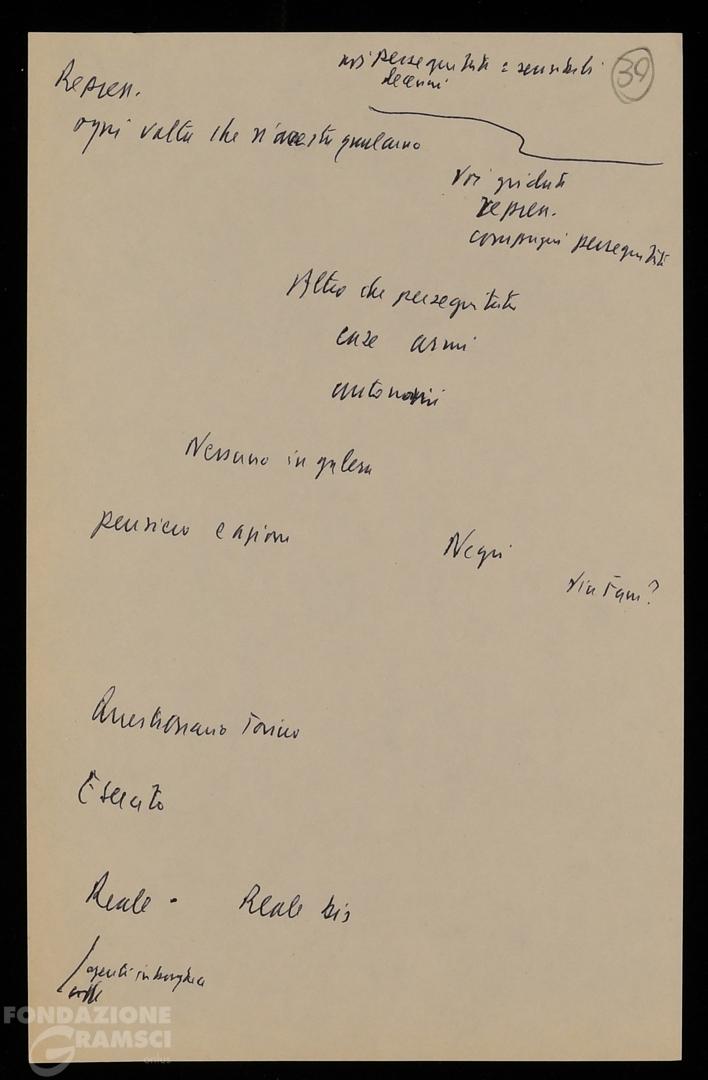 noi perseguitati = sensibili
decenni
39
Repress.
ogni volta che si arresta qualcuno
voi gridate
repress.
compagni perseguitati
Altro che perseguitati
case armi
autonomi
Nessuno in galera
pensiero e azione
Negri
Vietnam?
Questionario Torino
Esercito
Reale - Reale bis
agenti in borghese
FONDAZIONE
GRAMSCI
onlus